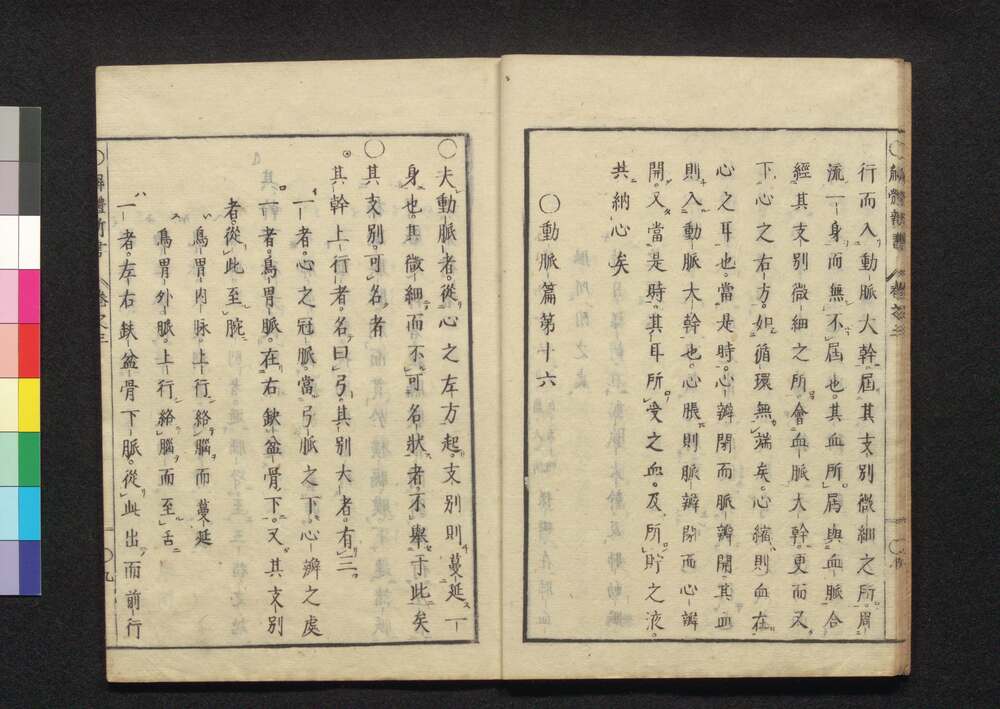 行而入動脈大幹。屆其支別微細之所。周
流一身。而無不屆也。其血所屆。與血脈合
經其支別微細之所。會血脈大幹。更而又
下心之右方。如循環無端矣。心縮則血在
心之耳也。當是時。心辨閉而脈辨開。其血
則入動脈大幹也。心脹則脈辨閉而心辨
開。又當是時。其耳所受之血。及所貯之液。
共納心矣
〇動脈篇第十六
〇夫動脈者。從心之左方起。支別則蔓延一
身也。其微細而不可名狀者。不舉于此矣
〇其支別。可名者
其幹上行者。名曰弓。其別大者。有三。
一者。心之冠脈。當弓脈之下。心瓣之處
一者。鳥胃脈。在右缺盆骨下。又其支別
者。從此至腕
鳥胃內脈。上行絡腦而蔓延
鳥胃外脈。上行絡腦而至舌
一者。左右缺盆骨下脈。從此出而前行
〇解體新書
卷之三
〇九